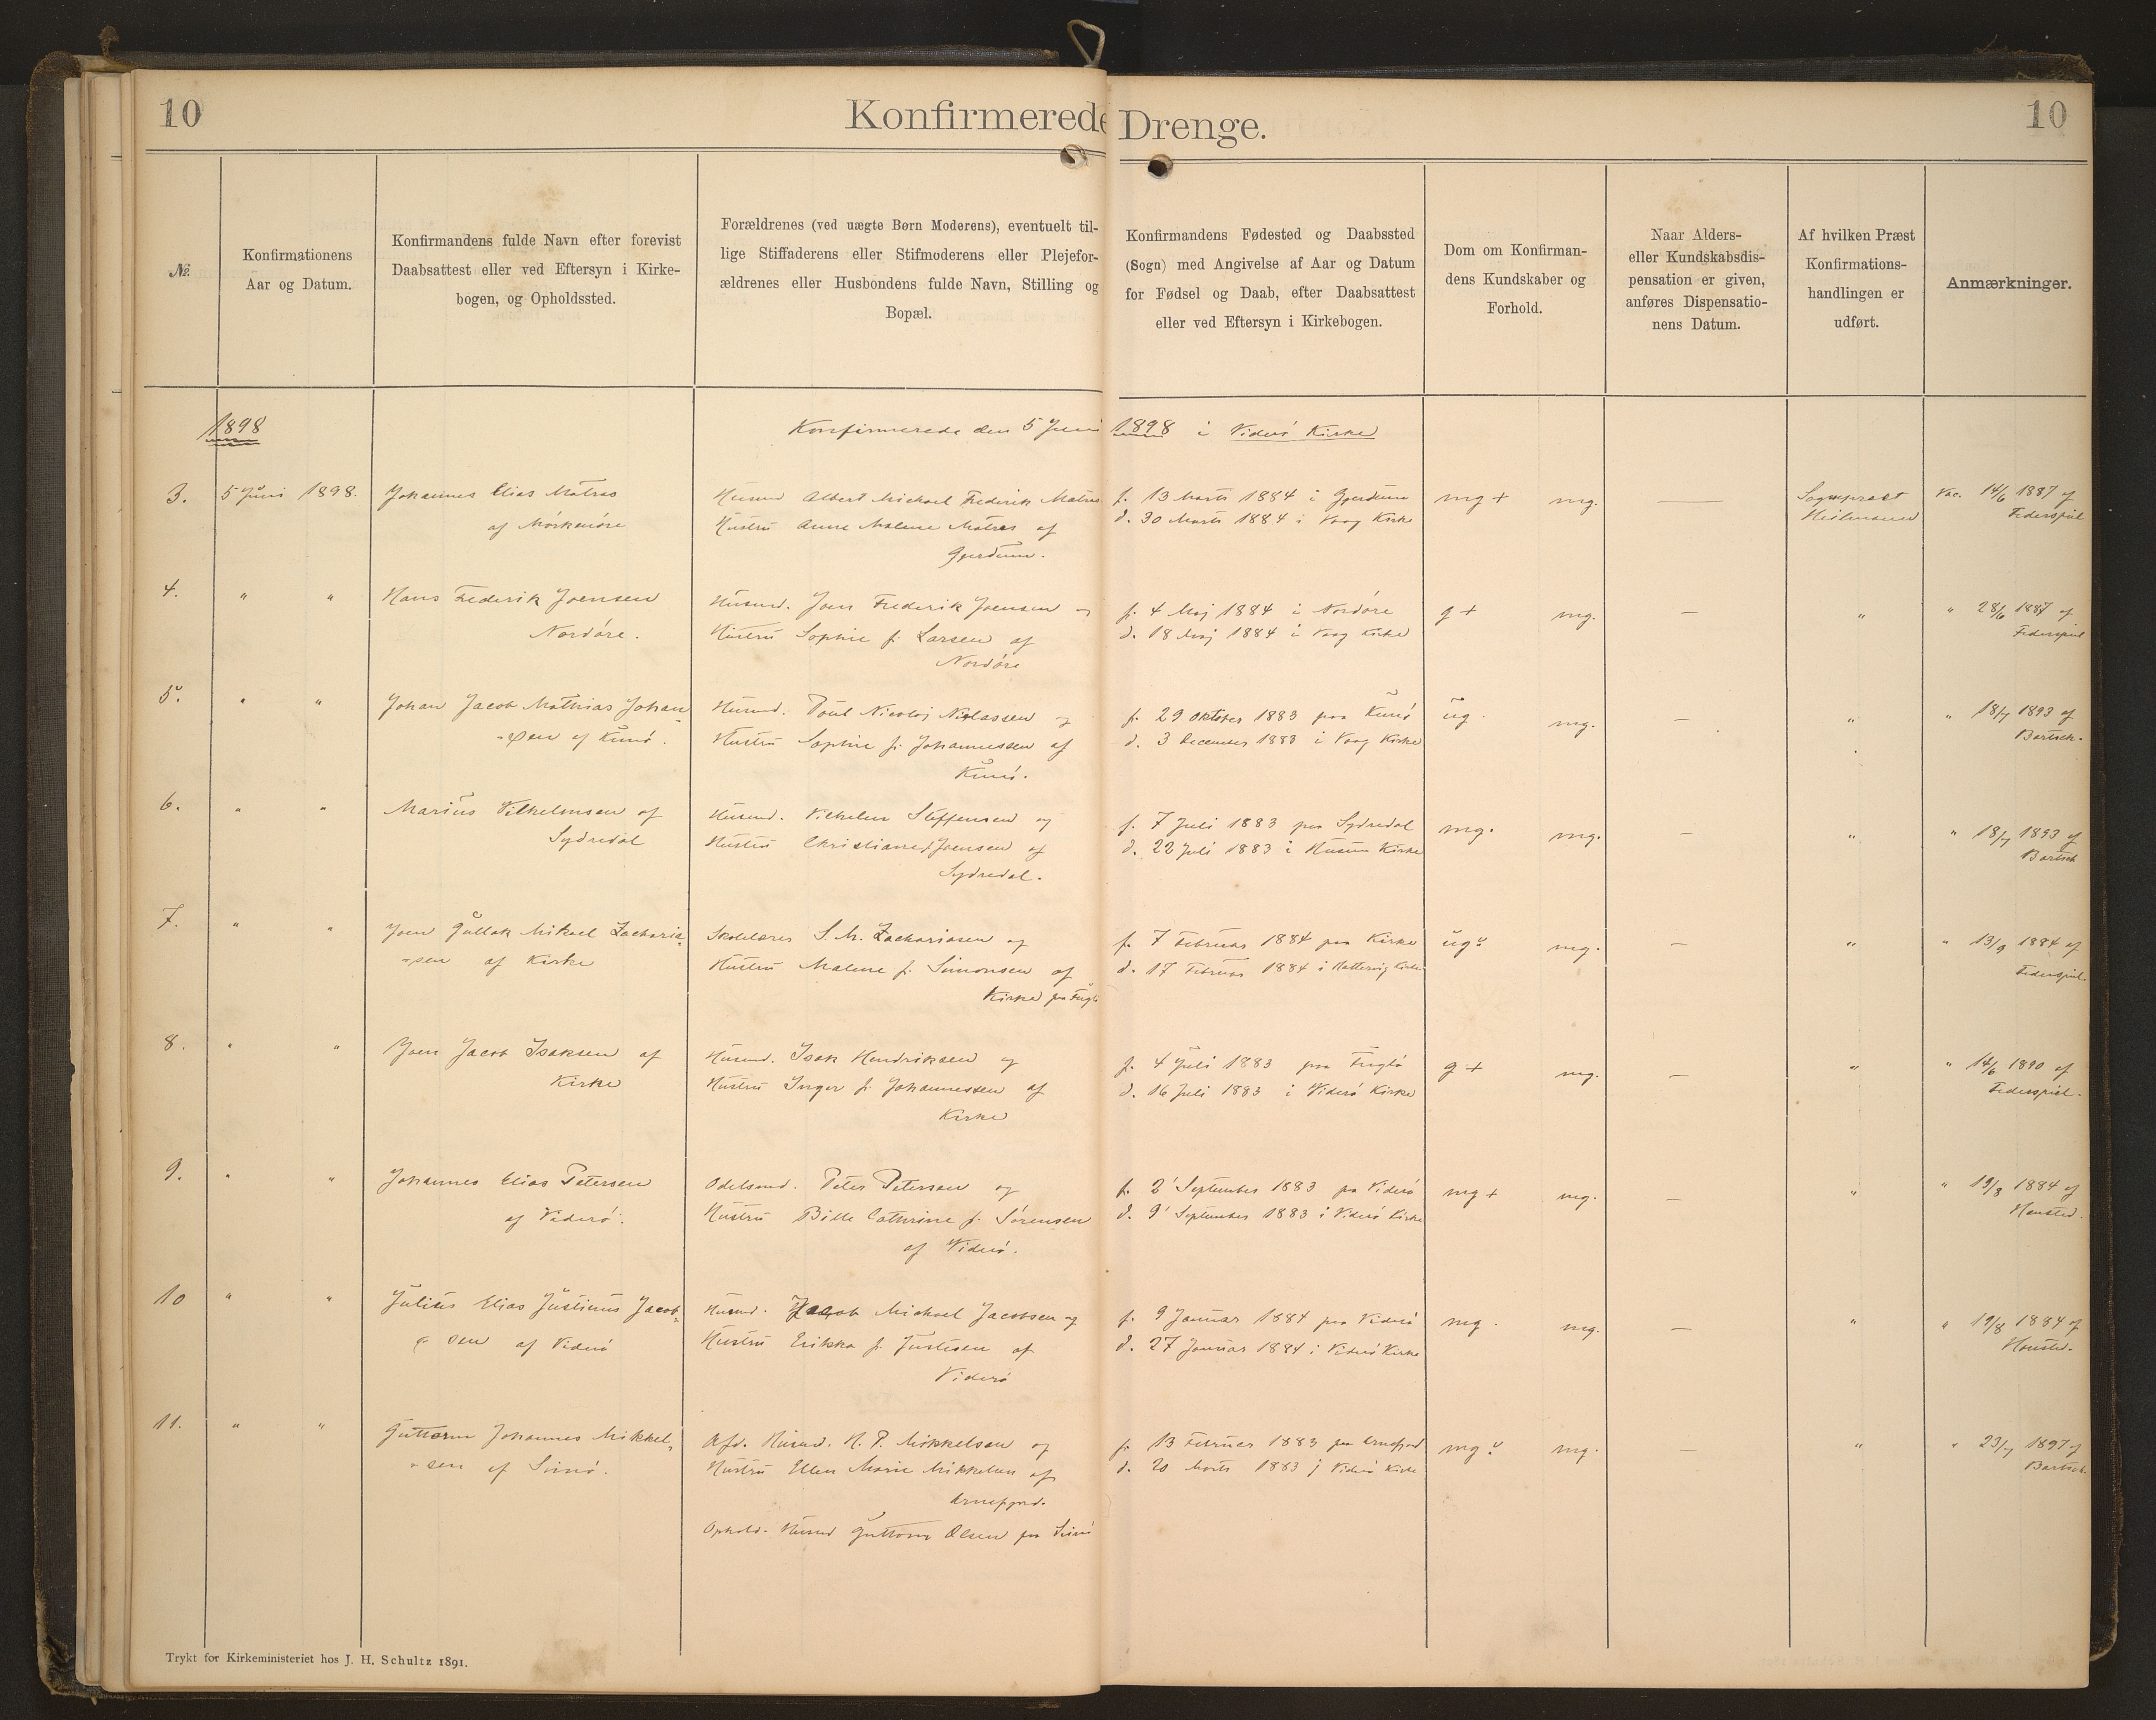 10
Konfirmerede Drenge.
10
№
Konfirmationens
Aar og Datum.
Konfirmandens fulde Navn efter forevist
Daabsattest eller ved Eftersyn i Kirke-
bogen, og Opholdssted.
Forældrenes (ved uægte Børn Moderens), eventuelt til-
lige Stiffaderens eller Stifmoderens eller Plejefor-
ældrenes eller Husbondens fulde Navn, Stilling og
Bopæl.
Konfirmandens Fødested og Daabssted
(Sogn) med Angivelse af Aar og Datum
for Fødsel og Daab, efter Daabsattest
eller ved Eftersyn i Kirkebogen.
Dom om Konfirman-
dens Kundskaber og
Forhold.
Naar Alders-
eller Kundskabsdis-
pensation er given,
anføres Dispensatio-
nens Datum.
Af hvilken Præst
Konfirmations-
handlingen er
udført.
Anmærkninger.
1898
Konfirmerede den 5 Juni 1898 i Viderø Kirke
3. 5 Juni 1898.
Johannes Elias Matras
af Mórkenóre
Husmd Albert Michael Frederik Matras
Hustru Anne Malene Matras af
Gjerdum.
f. 13 Marts 1884 i Gjerdum
d. 30 Marts 1884 i Vaag Kirke
mg + mg. —
Sognepræst
Heilmann
Vac. 14/6 1887 af
Federspiel
4. " "
Hans Frederik Joensen
Nordóre.
Husmd. Joen Frederik Joensen og
Hustru Sophie f. Larsen af
Nordóre
f. 4 Maj 1884 i Nordóre
d. 18 Maj 1884 i Vaag Kirke
g + mg. — "
" 28/6 1887 af
Federspiel
5. " "
Johan Jacob Mathias Johan-
-sen af Kunø.
Husmd. Poul Nicolaj Niclassen og
Hustru Sophie f. Johannessen af
Kunø.
f. 29 Oktober 1883 paa Kunø
d. 3 December 1883 i Vaag Kirke
ug. mg. — "
" 18/7 1893 af
Bartsch.
6. " "
Marius Vilhelmsen af
Sydredal
Husmd. Vilhelm Steffensen og
Hustru Christiane f. Joensen af
Sydredal.
f. 7 Juli 1883 paa Sydredal
d. 22 Juli 1883 i Husum Kirke
mg. mg. — "
" 18/7 1893 af
Bartsch
7. " "
Joen Gullak Mikael Zacharia-
-sen af Kirke
Skolelærer S. M. Zachariasen og
Hustru Malene f. Simonsen af
Kirke paa Fuglø
f. 7 Februar 1884 paa Kirke
d. 17 Februar 1884 i Hattervig Kirke
ug mg. — "
" 13/9 1884 af
Federspiel.
8. " "
Joen Jacob Isaksen af
Kirke
Husmd. Isak Hendriksen og
Hustru Inger f. Johannessen af
Kirke
f. 4 Juli 1883 paa Fuglø
d. 16 Juli 1883 i Viderø Kirke
g + mg. — "
" 14/6 1890 af
Federspiel.
9. " "
Johannes Elias Petersen
af Viderø.
Odelsmd. Peter Petersen og
Hustru Bille Cathrine f. Sørensen
af Viderø.
f. 2 September 1883 pa Viderø
d. 9 September 1883 i Viderø Kirke
mg + mg. — "
" 19/8 1884 af
Hansted.
10 " "
Julius Elias Justinus Jacob-
sen af Viderø
Husmd. Jacob Michael Jacobsen og
Hustru Erikka f. Justesen af
Viderø
f. 9 Januar 1884 paa Viderø
d. 27 Januar 1884 i Viderø Kirke
mg. mg. — "
" 19/8 1884 af
Hansted.
11. " "
Guttorm Johannes Mikkel-
-sen af Svinø.
Afd. Husmd. H. P. Mikkelsen og
Hustru Ellen Marie Mikkelsen af
Arnefjord.
Ophold. Husmd Guttorm Olsen paa Svinø
f. 13 Februar 1883 paa Arnefjord
d. 20 Marts 1883 i Viderø Kirke
mg mg. — "
" 23/7 1897 af
Bartsch.
Trykt for Kirkeministeriet hos J. H. Schultz 1891.